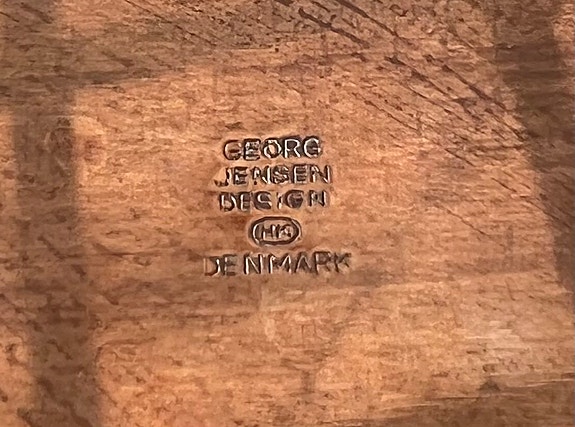 GEORG
JENSEN
DESIGN
HK
DENMARK